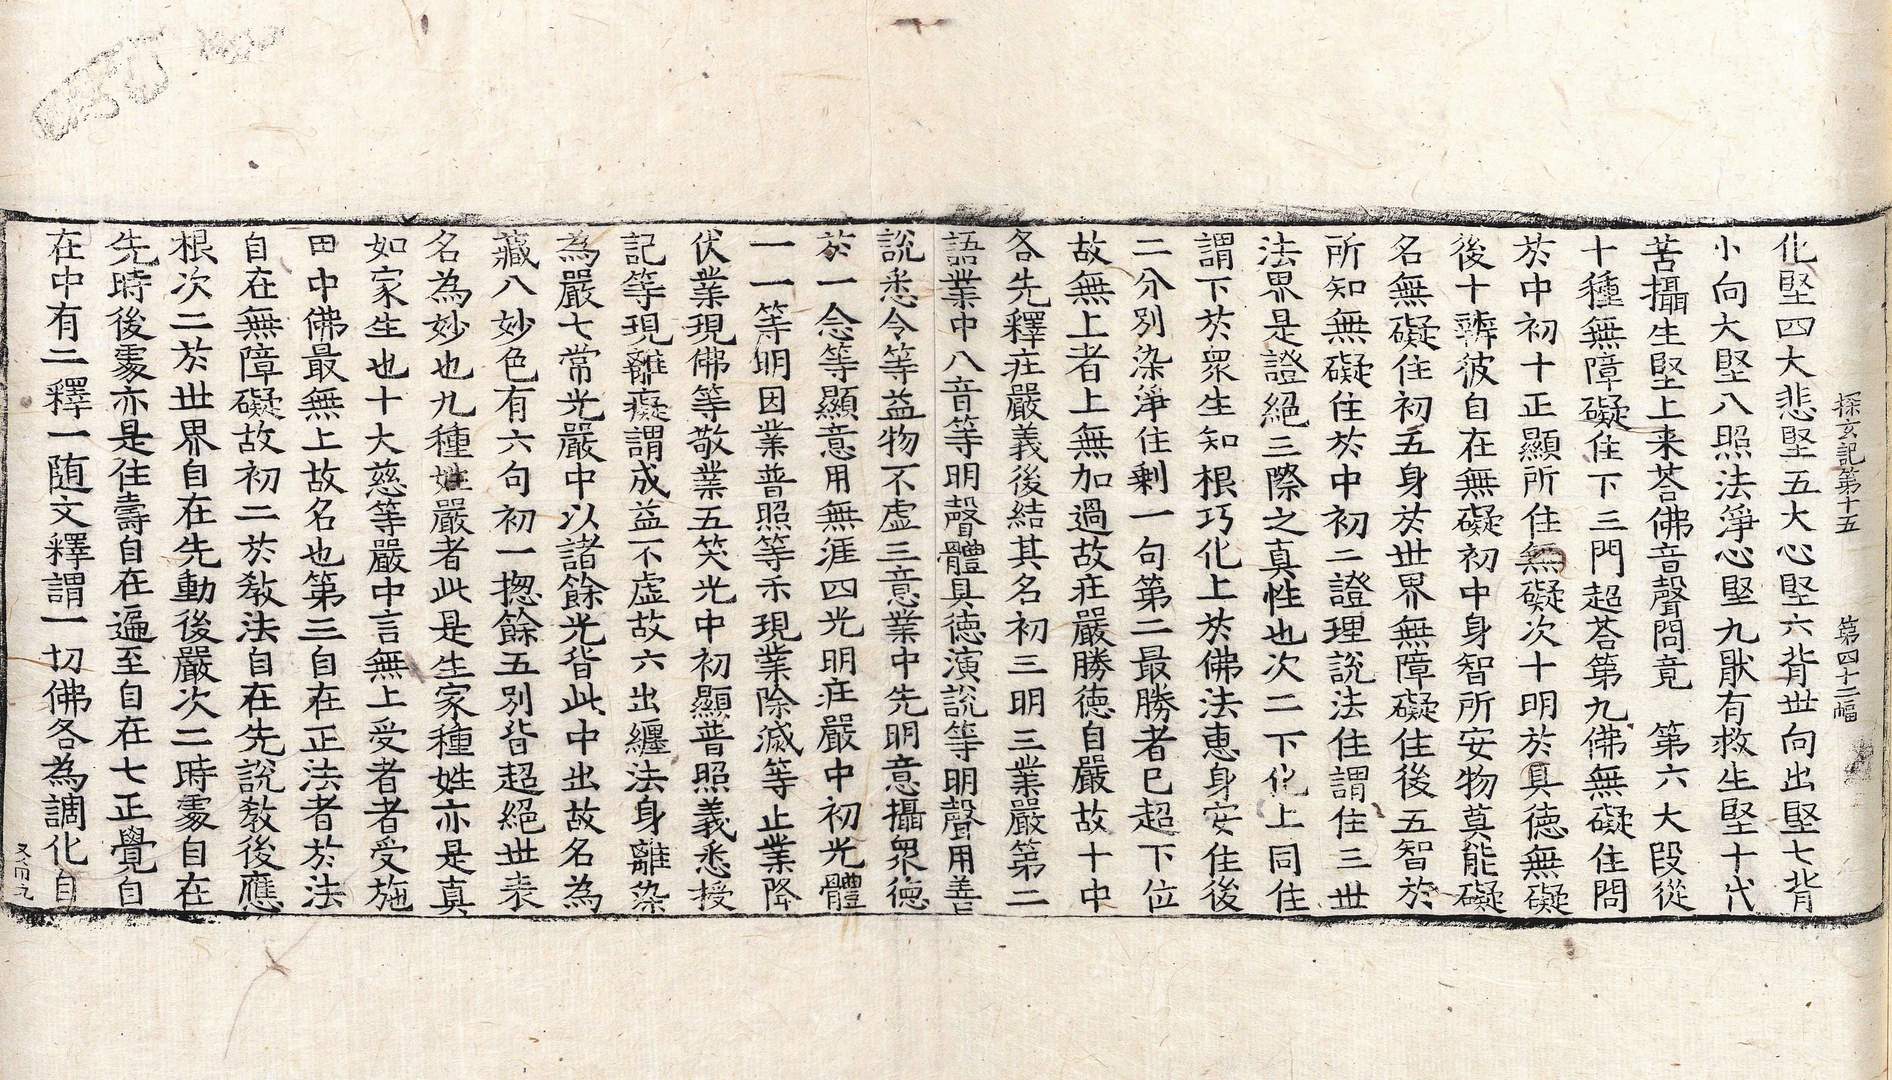 探玄記第十五 第四十二幅
化堅四大悲堅五大心堅六背世向出堅七背
小向大堅八照法淨心堅九猒有救生堅十代
苦攝生堅上来荅佛音聲問竟 第六大段從
十種無障礙住下三門超荅第九佛無礙住問
於中初十正顯所住無礙次十明於具德無礙
後十辨彼自在無礙初中身智所安物莫能礙
名無礙住初五身於世界無障礙住後五智於
所知無礙住於中初二證理說法住謂住三世
法界是證絕三際之真性也次二下化上同住
謂下於衆生知根巧化上於佛法恵身安住後
二分別染淨住剩一句第二最勝者已超下位
故無上者上無加過故荘嚴勝德自嚴故十中
各先釋荘嚴義後結其名初三明三業嚴第二
語業中八音等明聲體具德演說等明聲用善
說悉令等益物不虛三意業中先明意攝衆德
於一念等顯意用無涯四光明荘嚴中初光體
一一等明因業普照等示現業除滅等止業降
伏業現佛等敬業五笑光中初顯普照義悉授
記等現離癡謂成益不虛故六出纏法身離染
為嚴七常光嚴中以諸餘光皆此中出故名為
藏八妙色有六句初一揔餘五別皆超絕世表
名為妙也九種姓嚴者此是生家種姓亦是真
如家生也十大慈等嚴中言無上受者者受施
田中佛最無上故名也第三自在正法者於法
自在無障礙故初二於教法自在先說教後應
根次二於世界自在先動後嚴次二時䖏自在
先時後䖏亦是住壽自在遍至自在七正覺自
在中有二釋一随文釋謂一切佛各為調化自